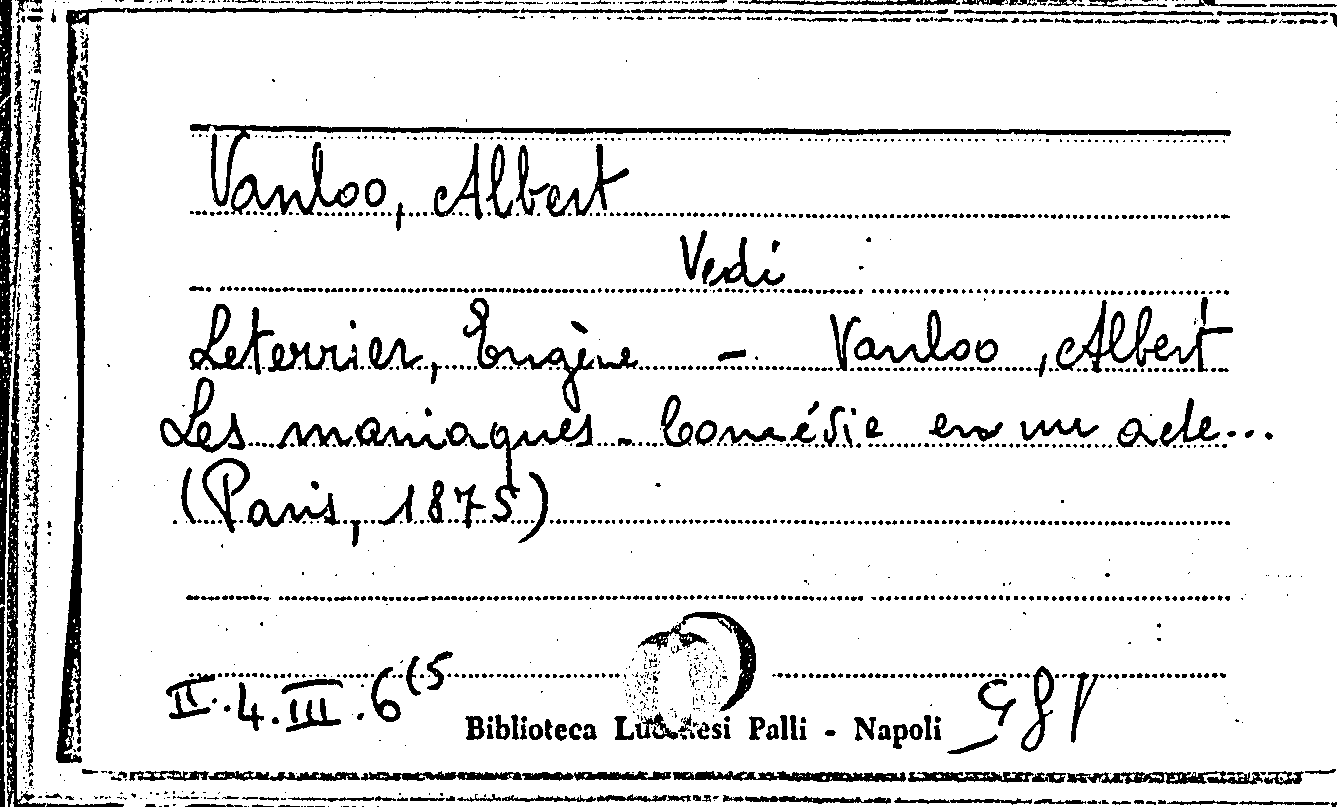 Vanloo, Albert
Vedi :
Leterrier, Eugène - Vanloo, Albert
Les maniaques - Comédie en un acte...
(Paris, 1875)
II.4.III.6(5
Biblioteca Lucchesi Palli - Napoli